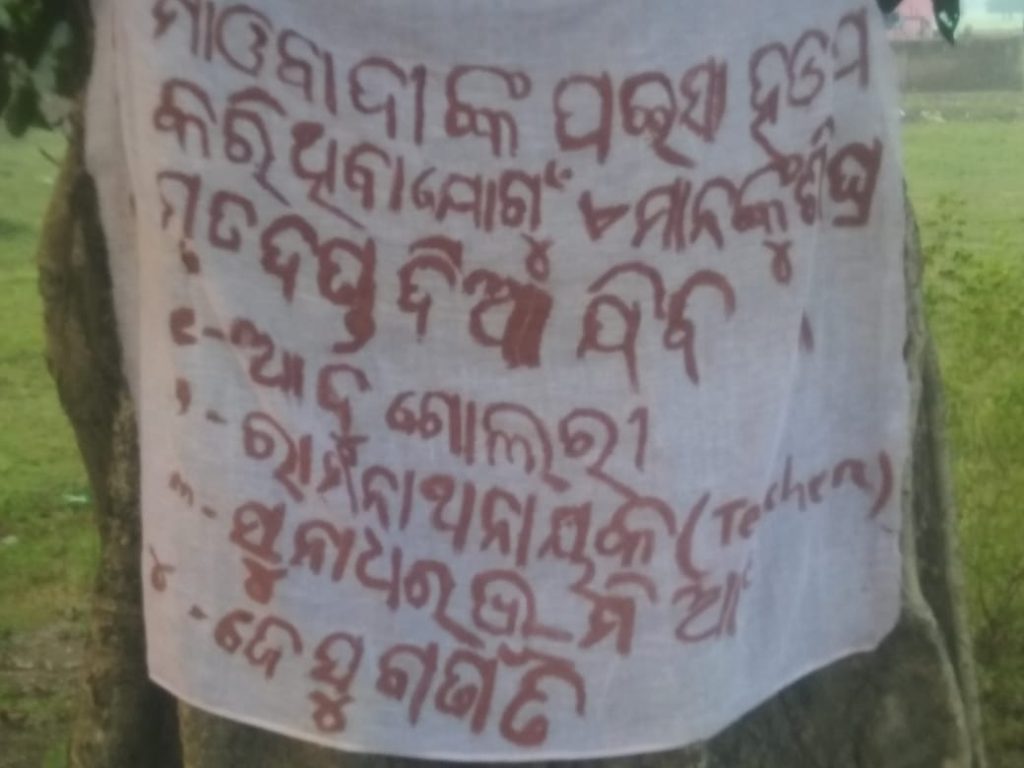 ମାଓବାଦୀଙ୍କ ପଇସା ହଡପ
କରିଥିବା ଯୋଗୁଁ ୪ମାନଙ୍କୁ ଶିଘ୍ର
ମୃତଦଣ୍ଡ ଦିଆ ଯିବ ।
୧-ଆଦୁ ଗୋଲରୀ
୨- ରାମନାଥ ନାୟକ (Teacher)
୩- ସୁନାଧର ଭ
୪- ଜେଯୁ